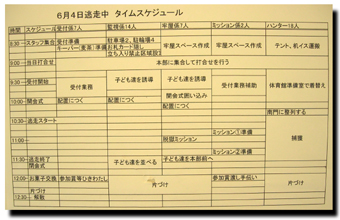 6月4日逃走中 タイムスケジュール
時間 スケジュール 受付係7人 監視係14人 牢屋係1人 ミッション係2人 ハンター18人
8:30~ スタッフ集合 受付準備 駐車場2、駐輪場4 牢屋スペース作成 牢屋スペース作成 テント、机イス運搬
お札カード隠し
立ち入り禁止区域設
9:00 当日打合せ 本部に集合して打合せを行う
9:30~ 受付開始 受付業務 子ども達を誘導 子ども達を誘導 受付業務補助 体育館準備室で着替え
開会式囲い込み
10:00~ 開会式 配置につく 配置につく 配置につく
南門に整列する
10:30~ 逃走スタート
ミッション①準備 捕獲
11:00~ 祝獄ミッション
ミッション②準備
11:30~ 逃走終了 子ども達を並べる 子ども達を本部前へ
閉会式
12:00~ お菓子交換 参加賞等ひきわたし 片づけ 参加賞渡し手伝い 片づけ
片づけ 片づけ
12:30~ 解散